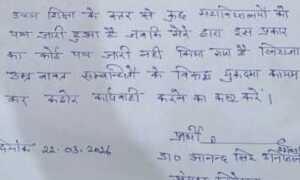 उच्च शिक्षा के स्तर से कुछ महाविद्यालयों को
पत्र जारी हुआ है जबकि मेरे द्वारा इस प्रकार
का कोई पत्र जारी नहीं किया गया है लिहाजा
उक्त बावत सम्बन्धितों के विरूद्ध मुकदमा कायम
कर कठोर कार्यवाही करने का कष्ट करें।
प्रार्थी
दिनांक 22-03-2026
डा० आनन्द सिंह